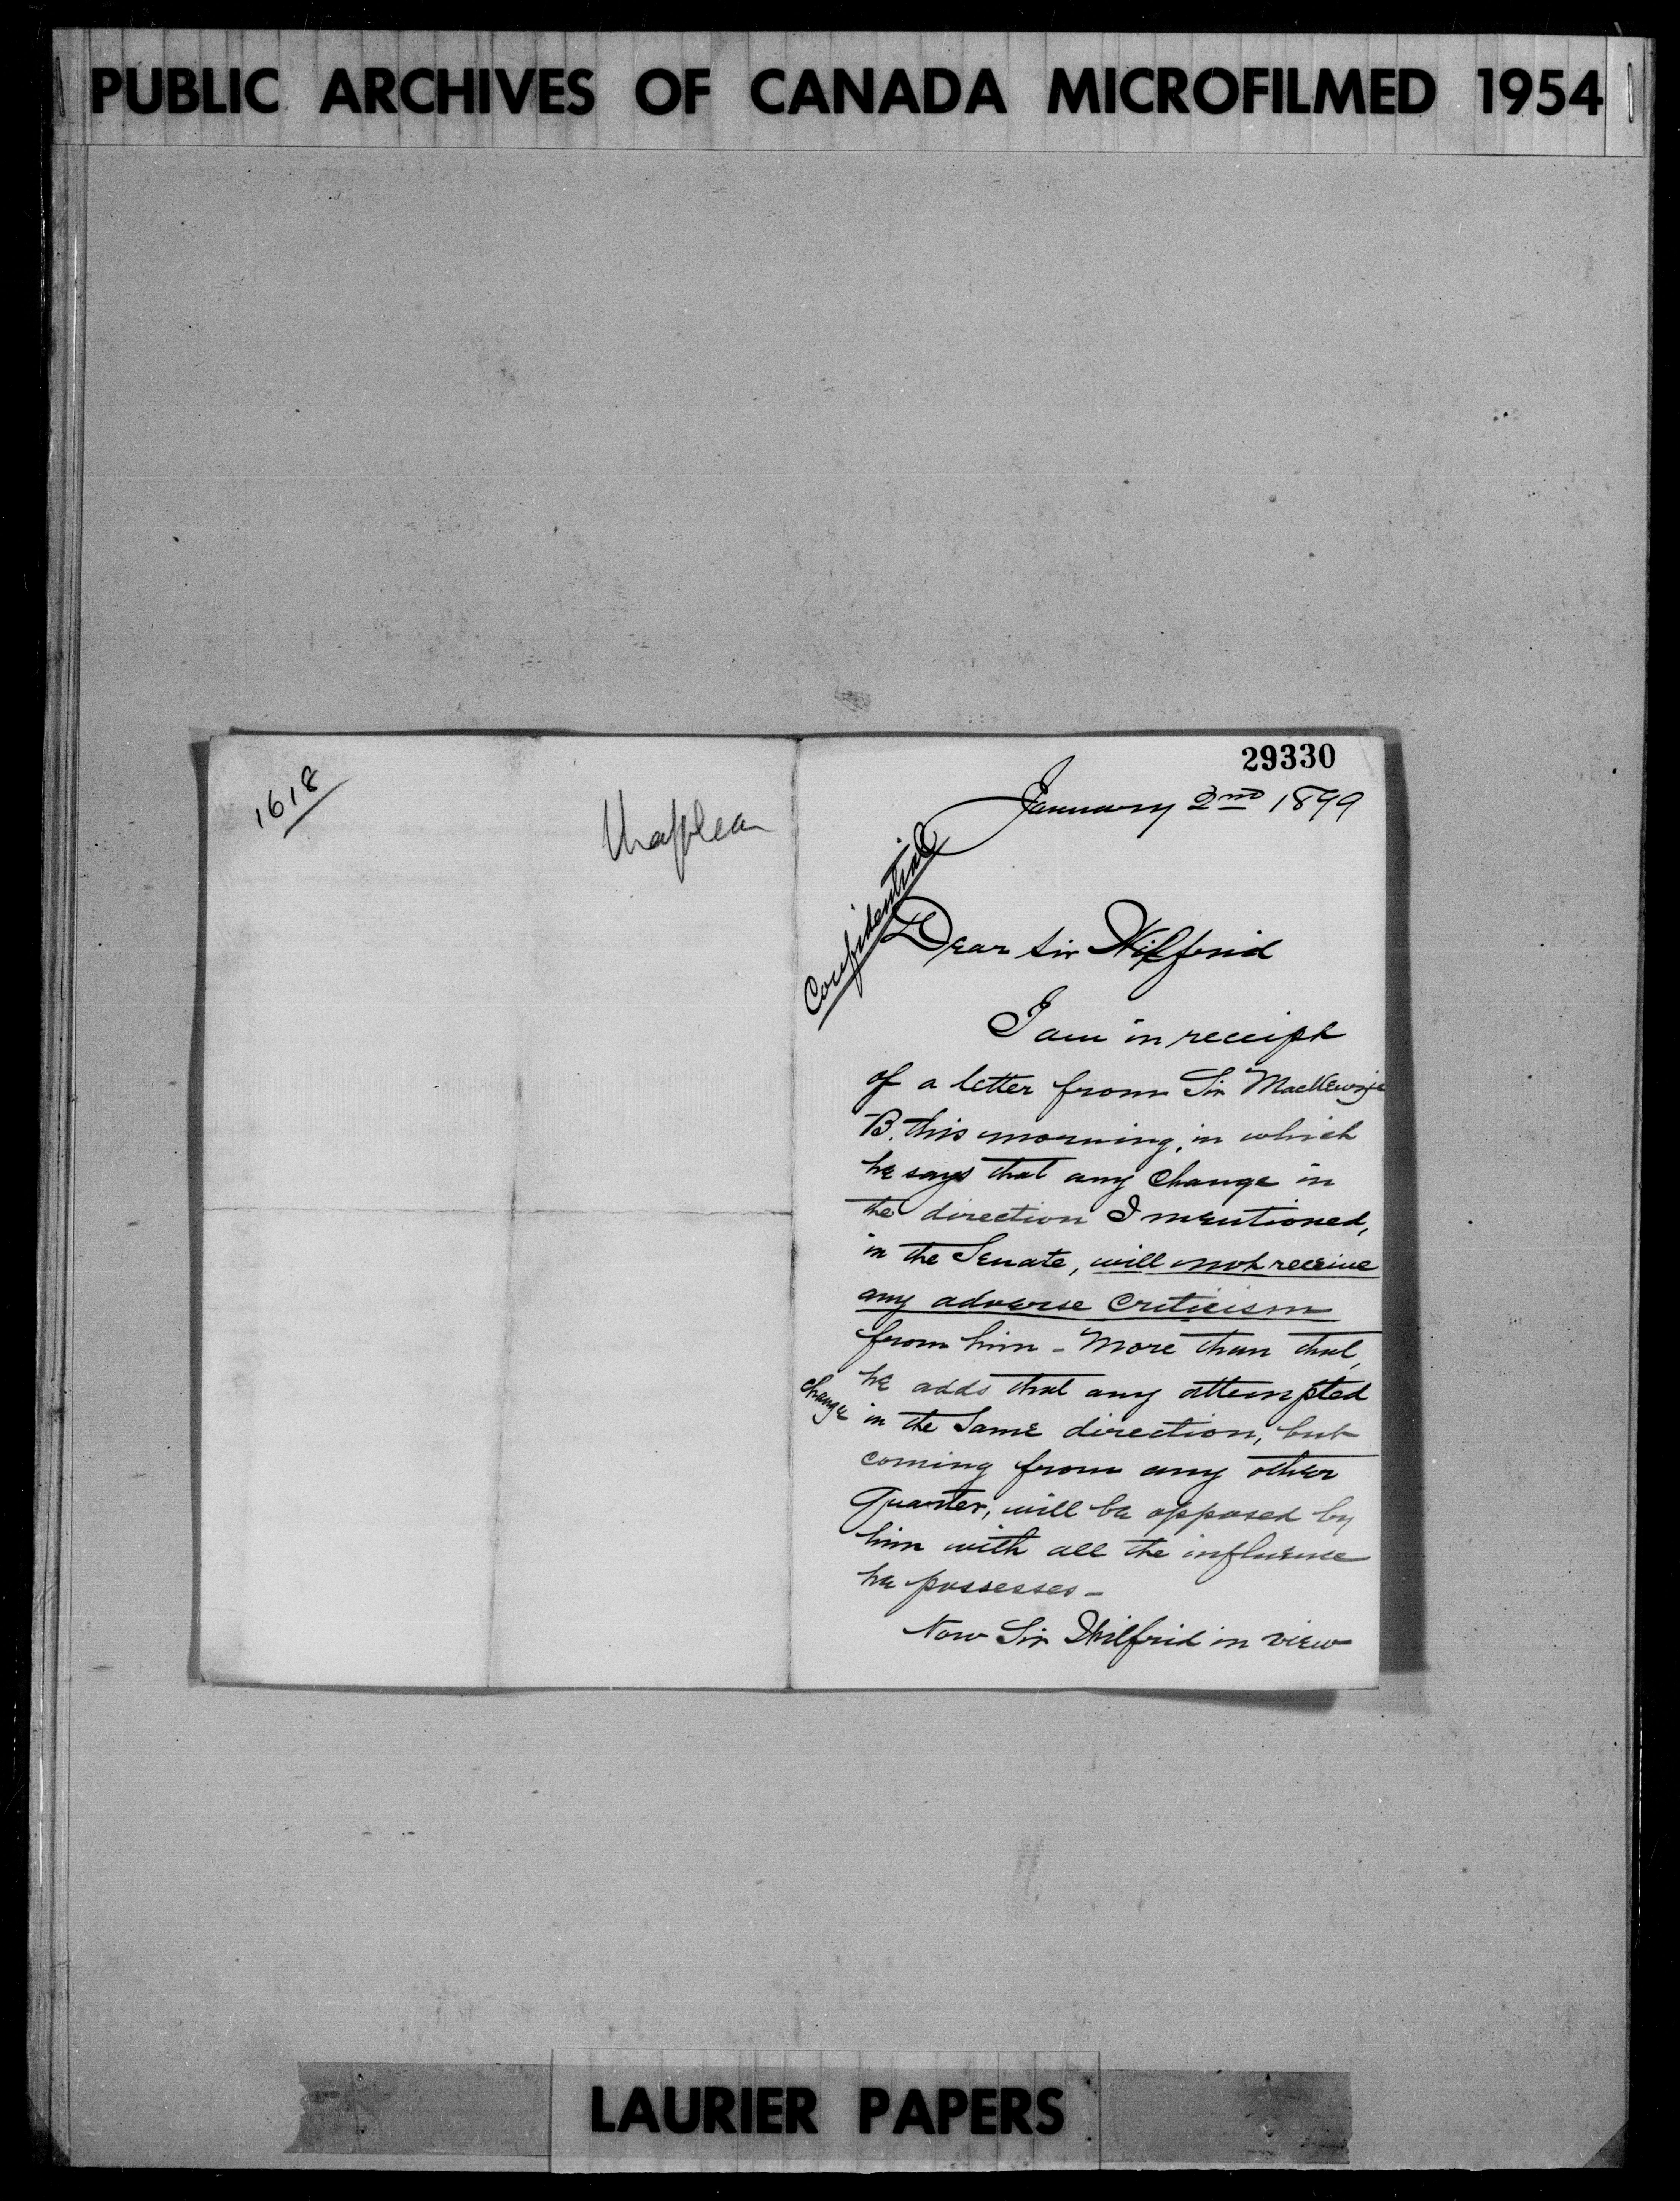 PUBLIC ARCHIVES OF CANADA MICROFILMED 1954
1618
Chapleau
29330
January 2nd 1899
Confidential
Dear Sir Wilfrid
I am in receipt
of a letter from Sir MacKenzie
B. this morning, in which
he says that any change in
the direction I mentioned,
in the Senate, will not receive
any adverse criticism
from him - More than that,
he adds that any attempted
change in the same direction, but
coming from any other
quarter, will be opposed by
him with all the influence
he possesses -
Now Sir Wilfrid in view
LAURIER PAPERS